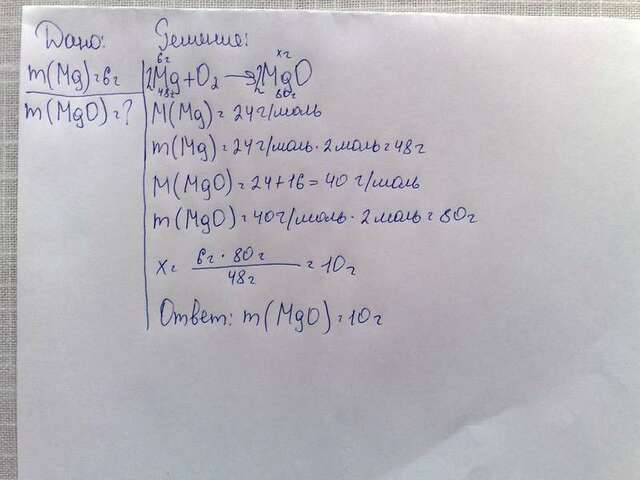 Дано: Решение:
m(Mg)=6г
6г xг
2Mg+O₂→2MgO
48г 80г
m(MgO)=?
M(Mg)=24г/моль
m(Mg)=24г/моль·2моль=48г
M(MgO)=24+16=40г/моль
m(MgO)=40г/моль·2моль=80г
x= 6г·80г / 48г =10г
Ответ: m(MgO)=10г